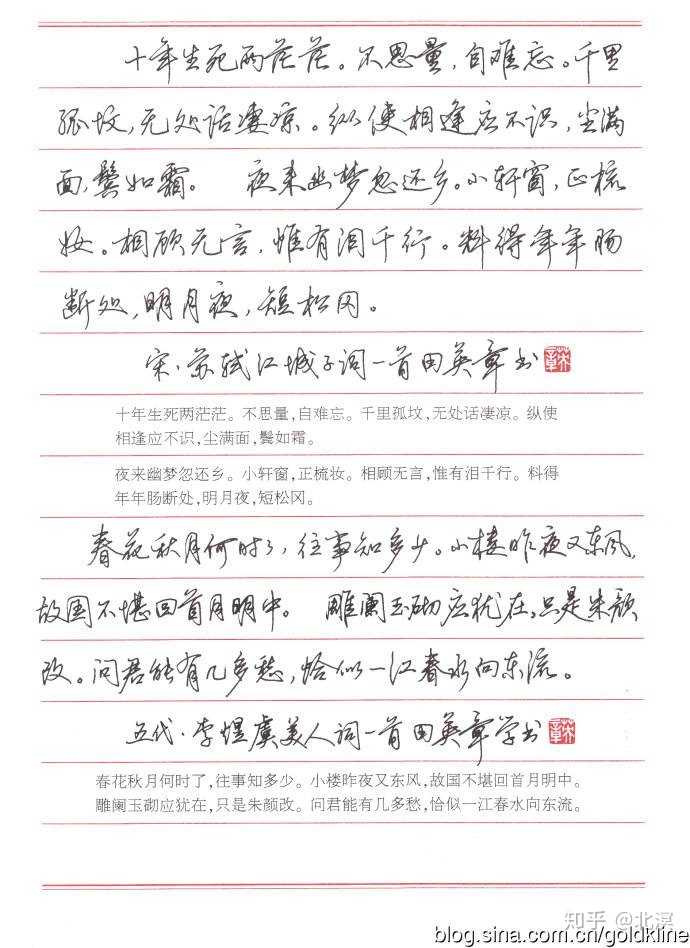 十年生死两茫茫。不思量，自难忘。千里
孤坟，无处话凄凉。纵使相逢应不识，尘满
面，鬓如霜。 夜来幽梦忽还乡。小轩窗，正梳
妆。相顾无言，惟有泪千行。料得年年肠
断处，明月夜，短松冈。
宋·苏轼江城子词一首田英章书
十年生死两茫茫。不思量，自难忘。千里孤坟，无处话凄凉。纵使
相逢应不识，尘满面，鬓如霜。
夜来幽梦忽还乡。小轩窗，正梳妆。相顾无言，惟有泪千行。料得
年年肠断处，明月夜，短松冈。
春花秋月何时了，往事知多少。小楼昨夜又东风，
故国不堪回首月明中。 雕阑玉砌应犹在，只是朱颜
改。问君能有几多愁，恰似一江春水向东流。
五代·李煜虞美人词一首田英章学书
春花秋月何时了，往事知多少。小楼昨夜又东风，故国不堪回首月明中。
雕阑玉砌应犹在，只是朱颜改。问君能有几多愁，恰似一江春水向东流。
知乎 @北溟
blog.sina.com.cn/goldkline